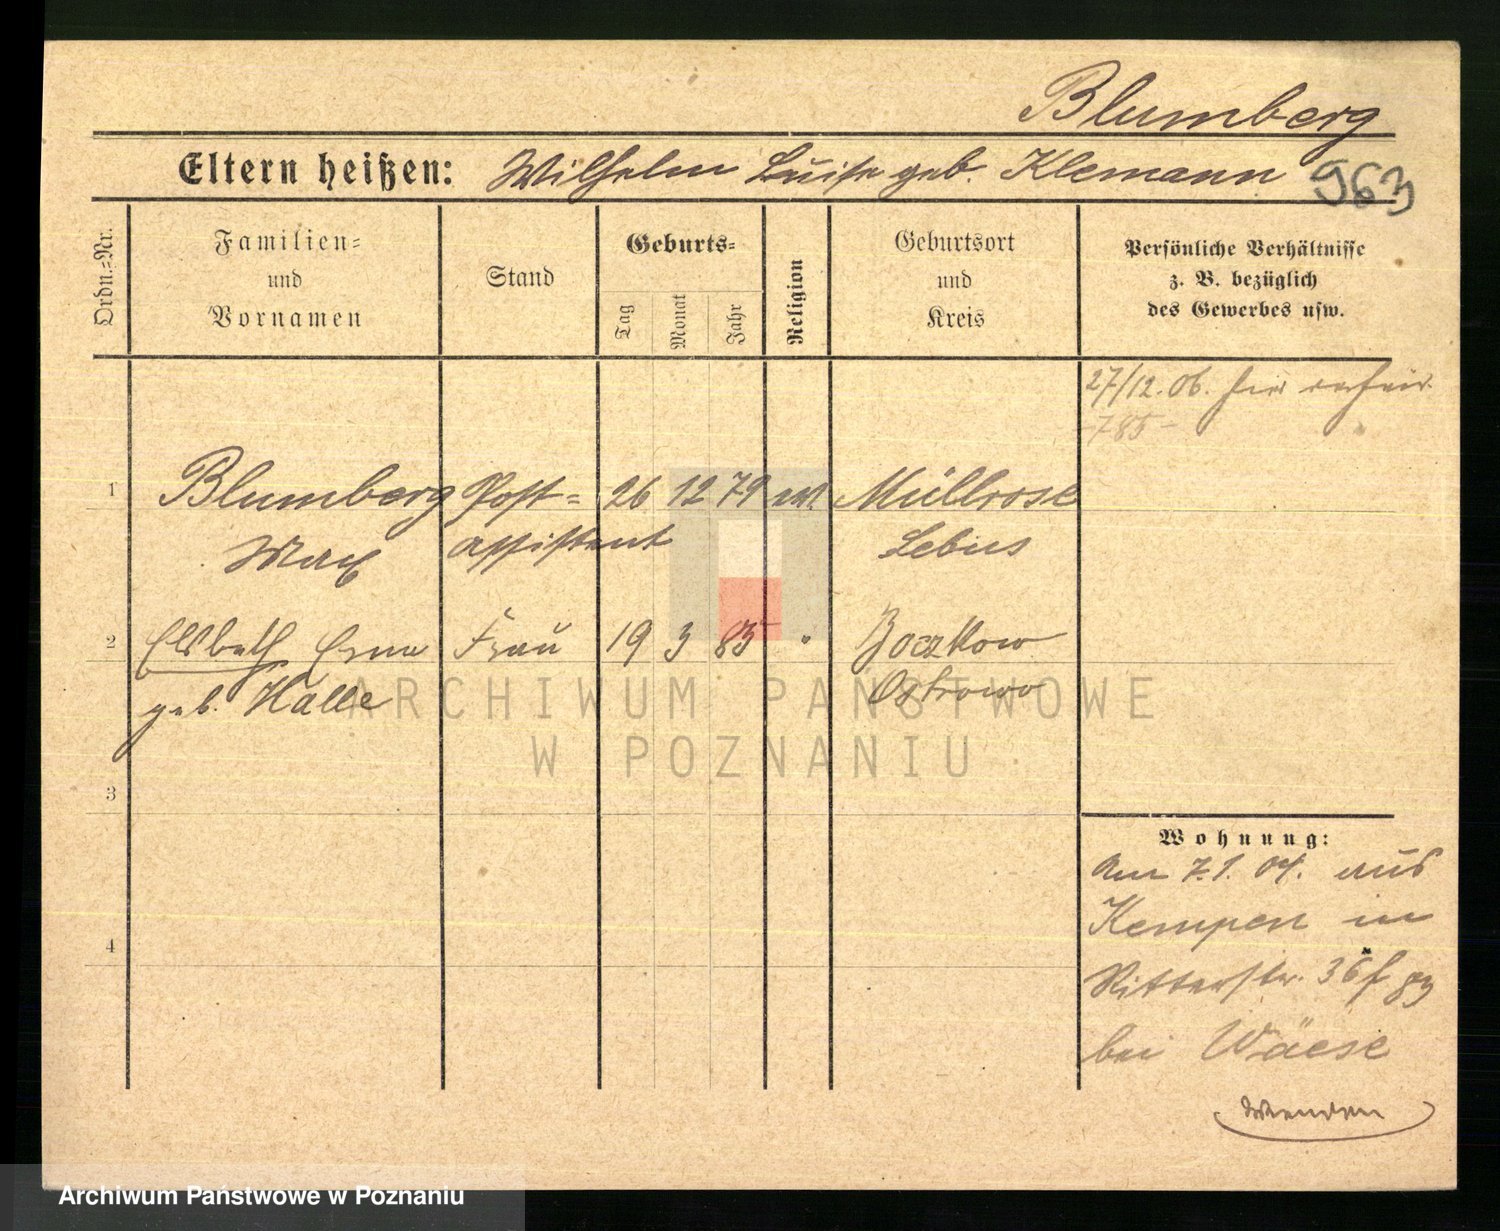 Blumberg
Eltern heißen: Wilhelm Luise geb. Klemann 963
Ordn.=Nr.
Familien=
und
Vornamen
Stand
Geburts=
Tag
Monat
Jahr
Religion
Geburtsort
und
Kreis
Persönliche Verhältnisse
z. B. bezüglich
des Gewerbes usw.
27/12. 06. hier
785-
1 Blumberg Post= 26 12 79 ev. Müllrose
Max assistent Lebus
2 Elsbeth Erna Frau 19 3 85 " Boczkow
geb. Halle Ostrowo
3
4
Wohnung:
Am 7.1. 04. aus
Kempen in
Ritterstr. 36
bei Wäese
Wenden
ARCHIWUM PAŃSTWOWE
W POZNANIU
Archiwum Państwowe w Poznaniu